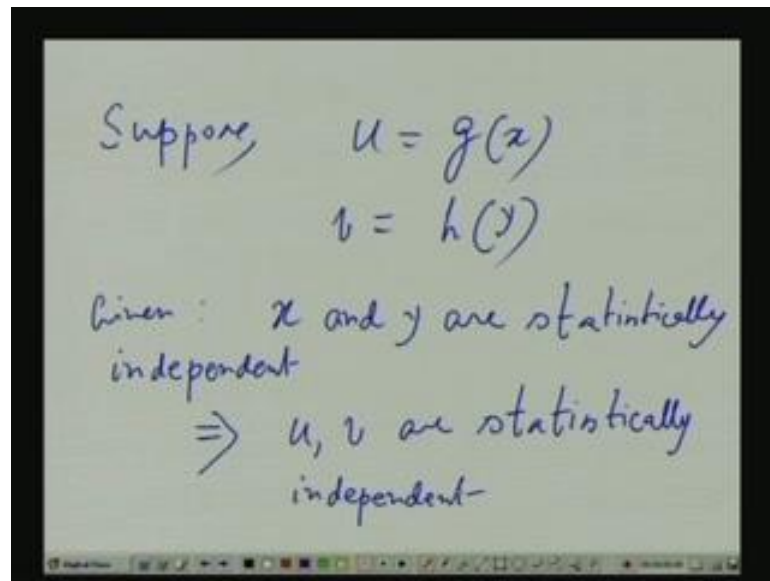 Suppose, u = g(x)
v = h(y)
Given : x and y are statistically
independent
⇒ u, v are statistically
independent